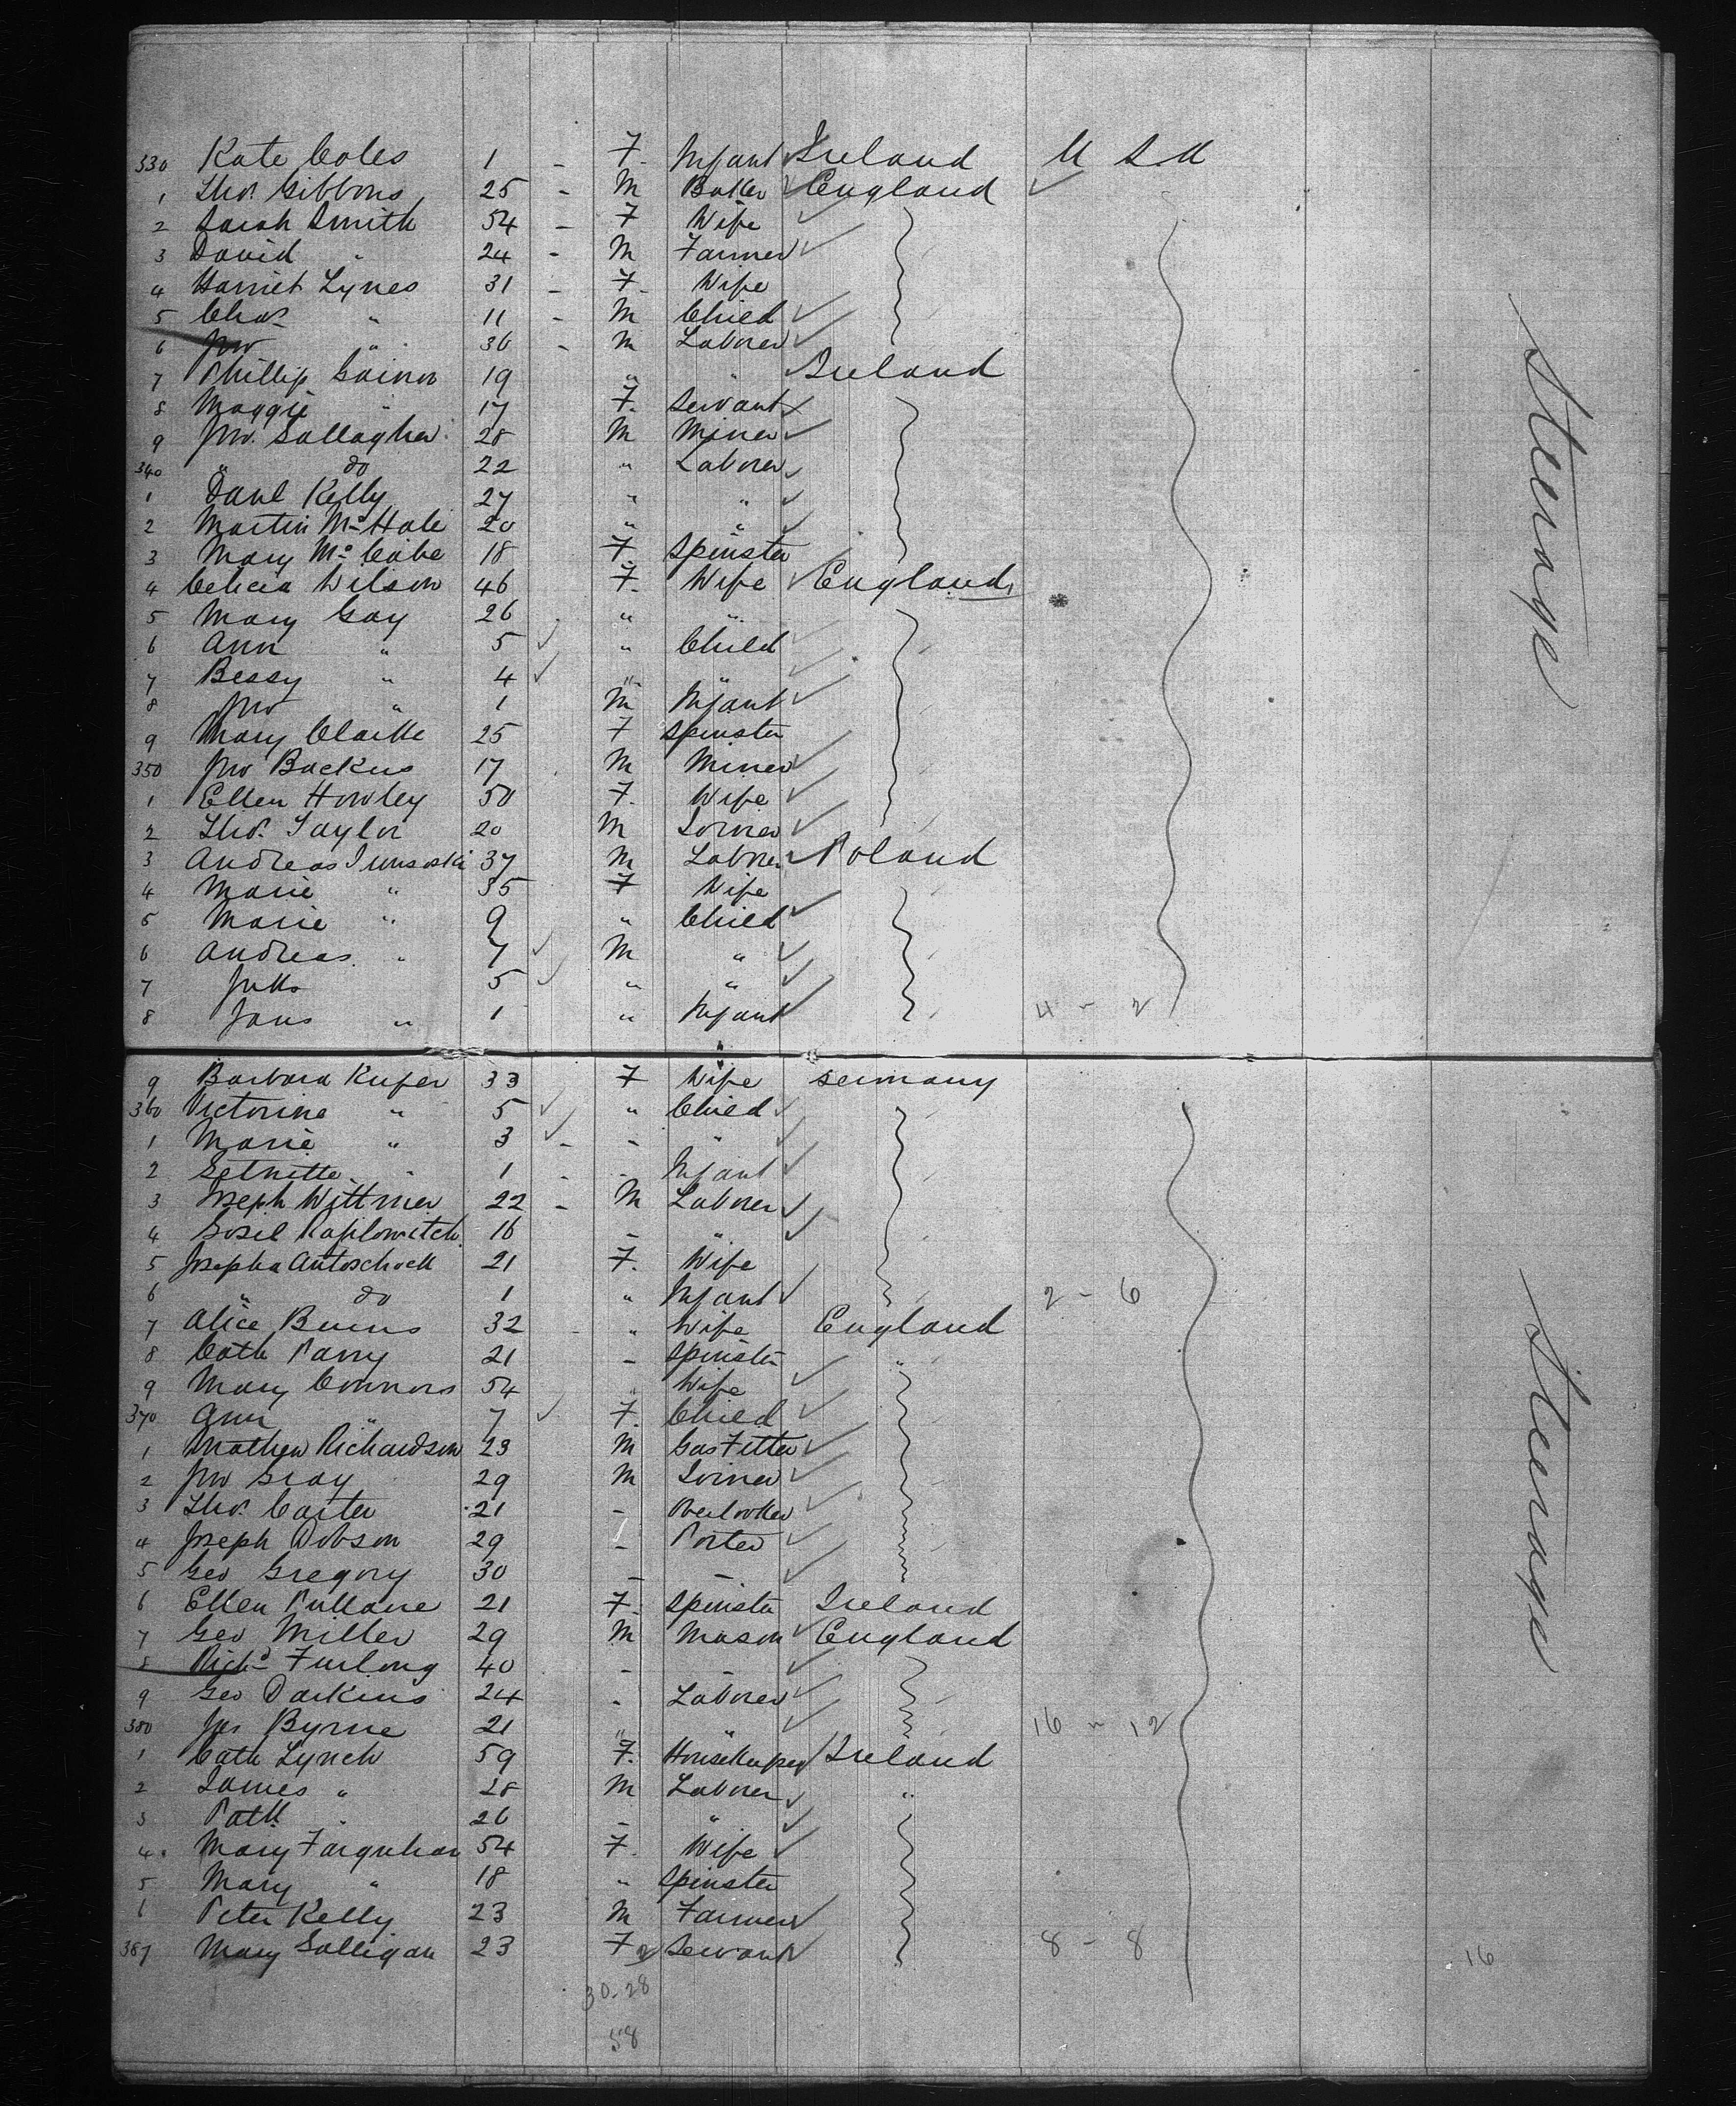 330 Kate Coles 1 - F. Infant Ireland U S A
1 Thos. Gibbons 25 - M Baker England
2 Sarah Smith 54 - F Wife
3 David " 24 - M Farmer
4 Harriet Lynes 31 - F Wife
5 Chas. " 11 - M Child
6 Jno " 36 - M Laborer
7 Phillip Gainor 19 " " Ireland
8 Maggie " 17 F. Servant
9 Jno. Gallagher 28 M Miner
340 " do 22 " Laborer
1 Danl Kelly 27 " "
2 Martin McHale 20 " "
3 Mary McCabe 18 F Spinster
4 Celicia Wilson 46 F. Wife England
5 Mary Gay 26 " "
6 Ann " 5 " Child
7 Bessy " 4 " "
8 Jno " 1 M Infant
9 Mary Clarke 25 F Spinster
350 Jno Backus 17 M Miner
1 Ellen Howley 50 F. Wife
2 Thos. Taylor 20 M Joiner
3 Andreas 37 M Laborer Poland
4 Marie " 35 F Wife
5 Marie " 9 " Child
6 Andreas " 7 M "
7 5 " "
8 Jans " 1 " Infant 4 - 2
Steerage
9 Barbara Kufer 33 F Wife Germany
360 Victorine " 5 " Child
1 Marie " 3 - - "
2 " 1 - - Infant
3 Joseph Wittmer 22 - M Laborer
4 16 - "
5 Josepha Antoschock 21 F. Wife
6 " do 1 " Infant 2 - 6
7 Alice Burns 32 " Wife England
8 Cath Parry 21 - Spinster "
9 Mary Connors 54 " Wife
370 Ann " 7 F. Child
1 Mathew Richardson 23 M Gas Fitter
2 Jno Gray 29 M Joiner
3 Thos. Carter 21 - Overlooker
4 Joseph Dobson 29 - Porter
5 Geo Gregory 30 - -
6 Ellen Pullane 21 F. Spinster Ireland
7 Geo Miller 29 M Mason England
8 Richd Furlong 40 - -
9 Geo Darkins 24 " Laborer
380 Jas Byrne 21 " " 16 - 12
1 Cath Lynch 59 F. Housekeeper Ireland
2 James " 28 M Laborer "
3 Patk " 26 - "
4 Mary Farquhar 54 F. Wife
5 Mary " 18 " Spinster
6 Peter Kelly 23 M Farmer
387 Mary Galligan 23 F Servant 8 - 8 16
30-28
58
Steerage